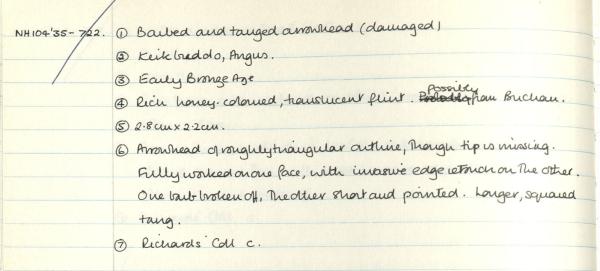 NH104'35-722. ① Barbed and tanged arrowhead (damaged)
② Keithbeddo, Angus.
③ Early Bronze Age
④ Rich honey-coloured, translucent flint. Possibly from Buchan.
⑤ 2.8cm x 2.2cm.
⑥ Arrowhead of roughly triangular outline, though tip is missing.
Fully worked on one face, with invasive edge retouch on the other.
One barb broken off, the other short and pointed. Longer, squared
tang.
⑦ Richards Coll c.